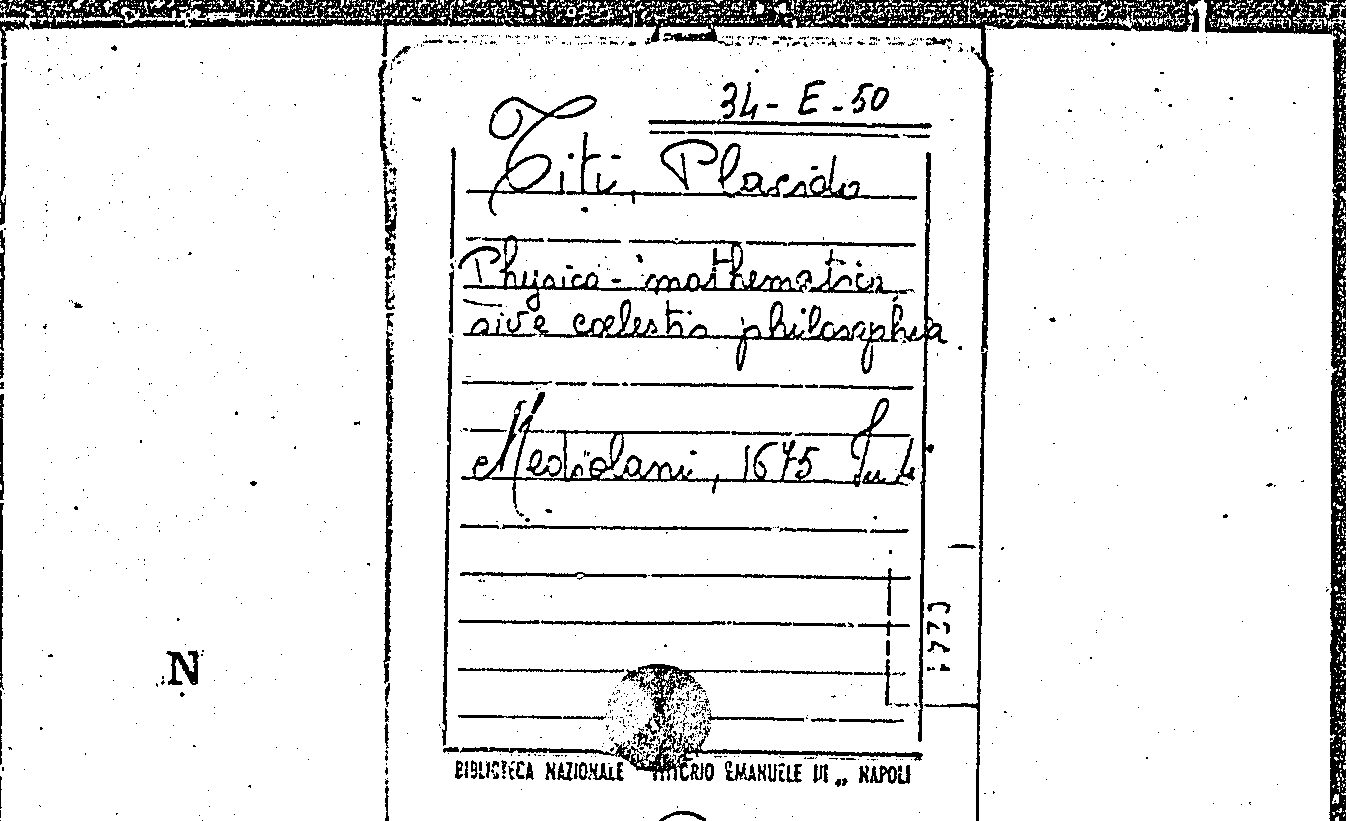 34-E-50
Titi, Placido
Physico-mathematica,
sive cœlestis philosophia
Mediolani, 1675
N
BIBLIOTECA NAZIONALE VITTORIO EMANUELE III „ NAPOLI